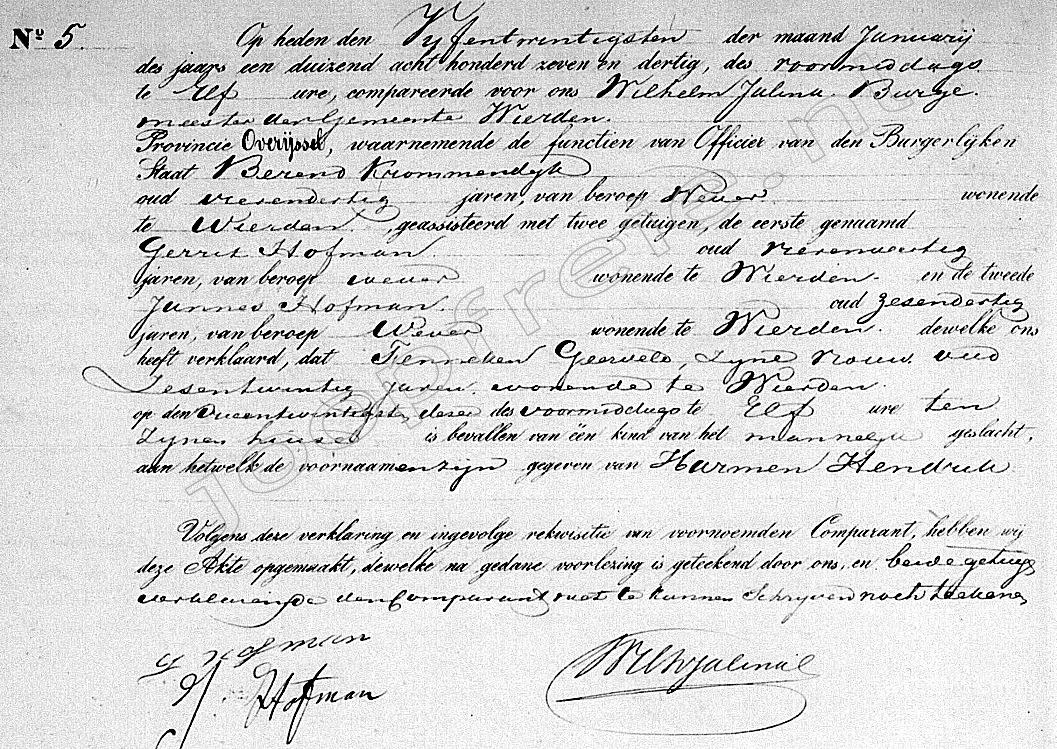 No 5. Op heden den Vyfentwintigsten der maand Januarij
des jaars een duizend acht honderd zeven en dertig, des voormiddags
te Elf ure, compareerde voor ons Wilhelm Jalink Burge
meester der Gemeente Wierden.
Provincie Overijssel, waarnemende de functien van Officier van den Burgerlijken
Staat Berend Krommendyk
oud vierendertig jaren, van beroep Wever wonende
te Wierden, geassisteerd met twee getuigen, de eerste genaamd
Gerrit Hofman oud vierenveertig
jaren, van beroep wever wonende te Wierden. en de tweede
Jannes Hofman. oud zesendertig
jaren, van beroep Wever wonende te Wierden. dewelke ons
heeft verklaard, dat Fenneken Geerveld, zyne vrouw, oud
zesentwintig jaren, wonende te Wierden.
op den dezer des voormiddags te Elf ure ten
zynen huise is bevallen van één kind van het mannelyk geslacht,
aan hetwelk de voornaamen zijn gegeven van Harmen Hendrik
Volgens deze verklaring en ingevolge rekwisitie van voornoemden Comparant, hebben wij
deze Akte opgemaakt, dewelke na gedane voorlezing is geteekend door ons, en beide getuige
verklarende den Comparant niet te kunnen Schryven noch teekenen
G Hofman
J. Hofman
joopfrers.nl